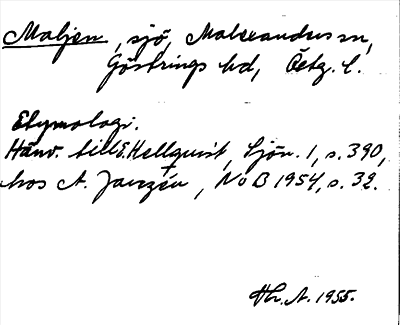 Maljen, sjö, Malexanders sn,
Göstrings hd, Östg. l.
Etymologi.
Hänv. till E. Hellquist, Sjön. 1, s. 390,
hos A. Janzén, NoB 1954, s. 32.
Hr. A. 1955.